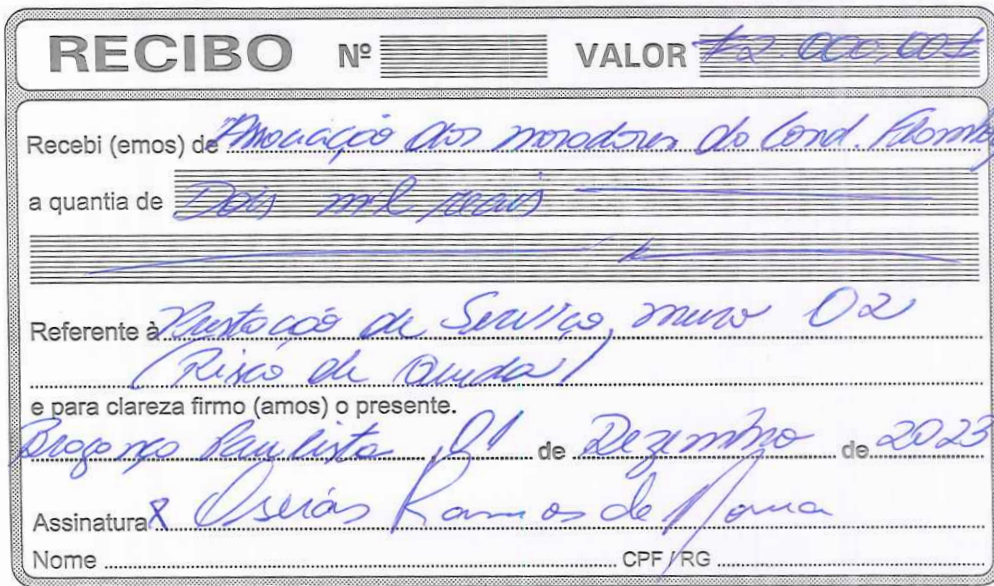 RECIBO Nº VALOR #2.000,00#
Recebi (emos) de Associação dos moradores do Cond.
a quantia de Dois mil reais
Referente à Prestação de Serviço, muro 02
(Risco de Queda)
e para clareza firmo (amos) o presente.
Bragança Paulista, 01 de Dezembro de 2023
Assinatura x Oseias Ramos de Moura
Nome CPF / RG